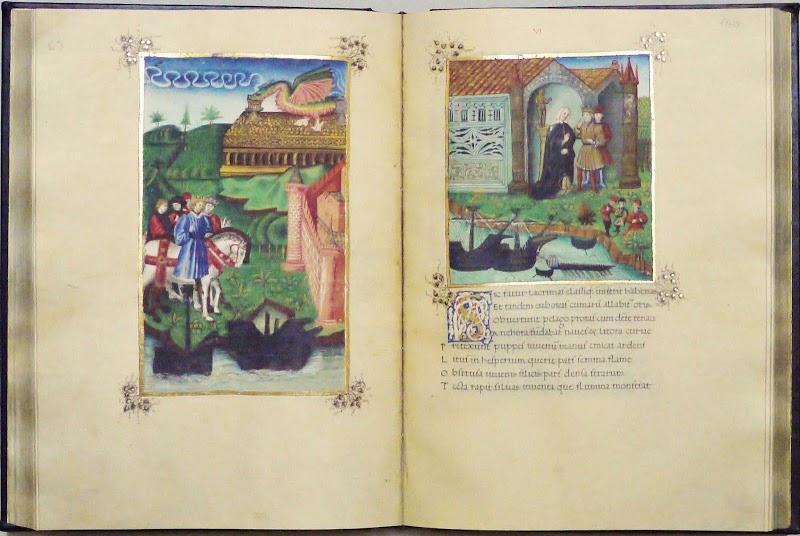 VI
Sic fatur lacrimans classiq; inmittit habenas
Et tandem euboicis cumarū allabitᷣ oris
Obvertunt pelago proras tum dente tenaci
Anchora fundabat naves et litora curue
Pretexunt puppes iuvenū manus emicat ardens
Litus in hesperium querit pars semina flame
Obstrusa in venis silicis pars densa ferarum
Tecta rapit silvas inventa que flumina monstrat